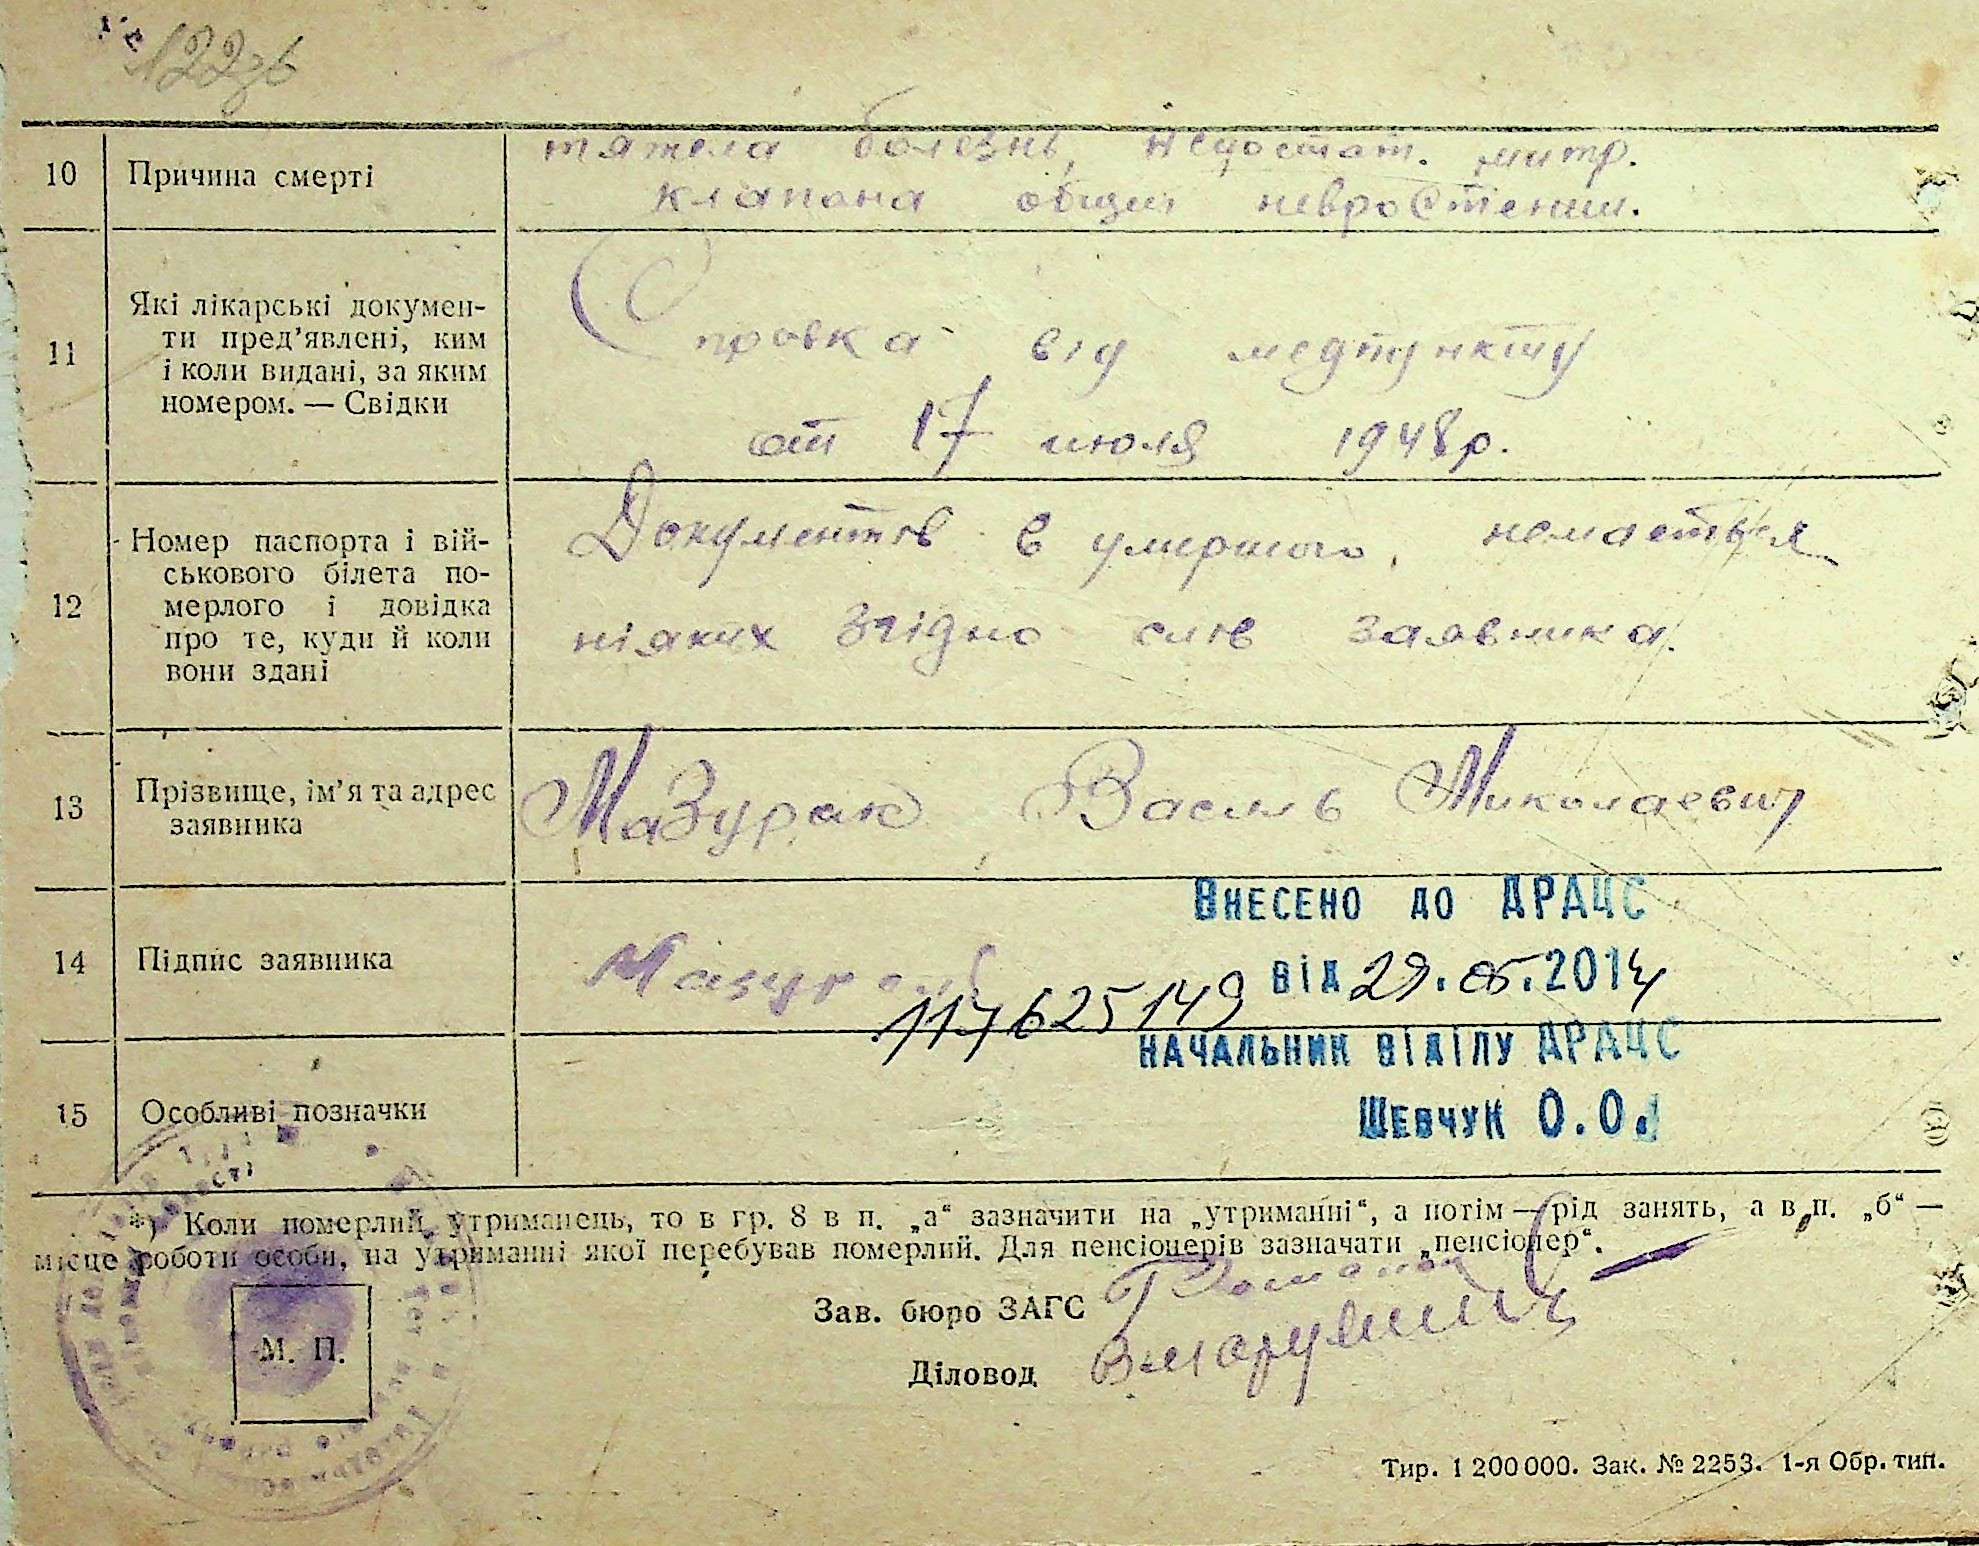 122зв
10 Причина смерті
тяжела болезнь, недостат. митр.
клапона общия невростении.
11 Які лікарські докумен-
ти пред’явлені, ким
і коли видані, за яким
номером. — Свідки
Справка від медпункту
от 17 июля 1948 р.
12 Номер паспорта і вій-
ськового білета по-
мерлого і довідка
про те, куди й коли
вони здані
Документів в умершого, немається
ніяких згідно слів заявника.
13 Прізвище, ім’я та адрес
заявника
Мазурак Василь Миколаевич
Внесено до ДРАЦС
14 Підпис заявника
Мазурак
від 29.05.2014
117625149
начальник відділу ДРАЦС
15 Особливі позначки
Шевчук О.О.
*) Коли померлий утриманець, то в гр. 8 в п. „а“ зазначити на „утриманні“, а потім — рід занять, а в п. „б“ —
місце роботи особи, на утриманні якої перебував померлий. Для пенсіонерів зазначати „пенсіонер“.
Зав. бюро ЗАГС
М. П.
Діловод
Тир. 1 200 000. Зак. № 2253. 1-я Обр. тип.